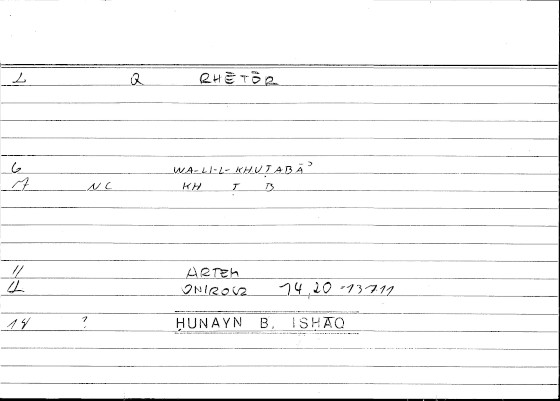 1 Q RHĒTŌR
6 WA-LI-L-KHUṬABĀʾ
7 NC KH Ṭ B
11 ARTEM
12 ONIROCR 14,20 -13711
14 ? ḤUNAYN B. ISḤĀQ